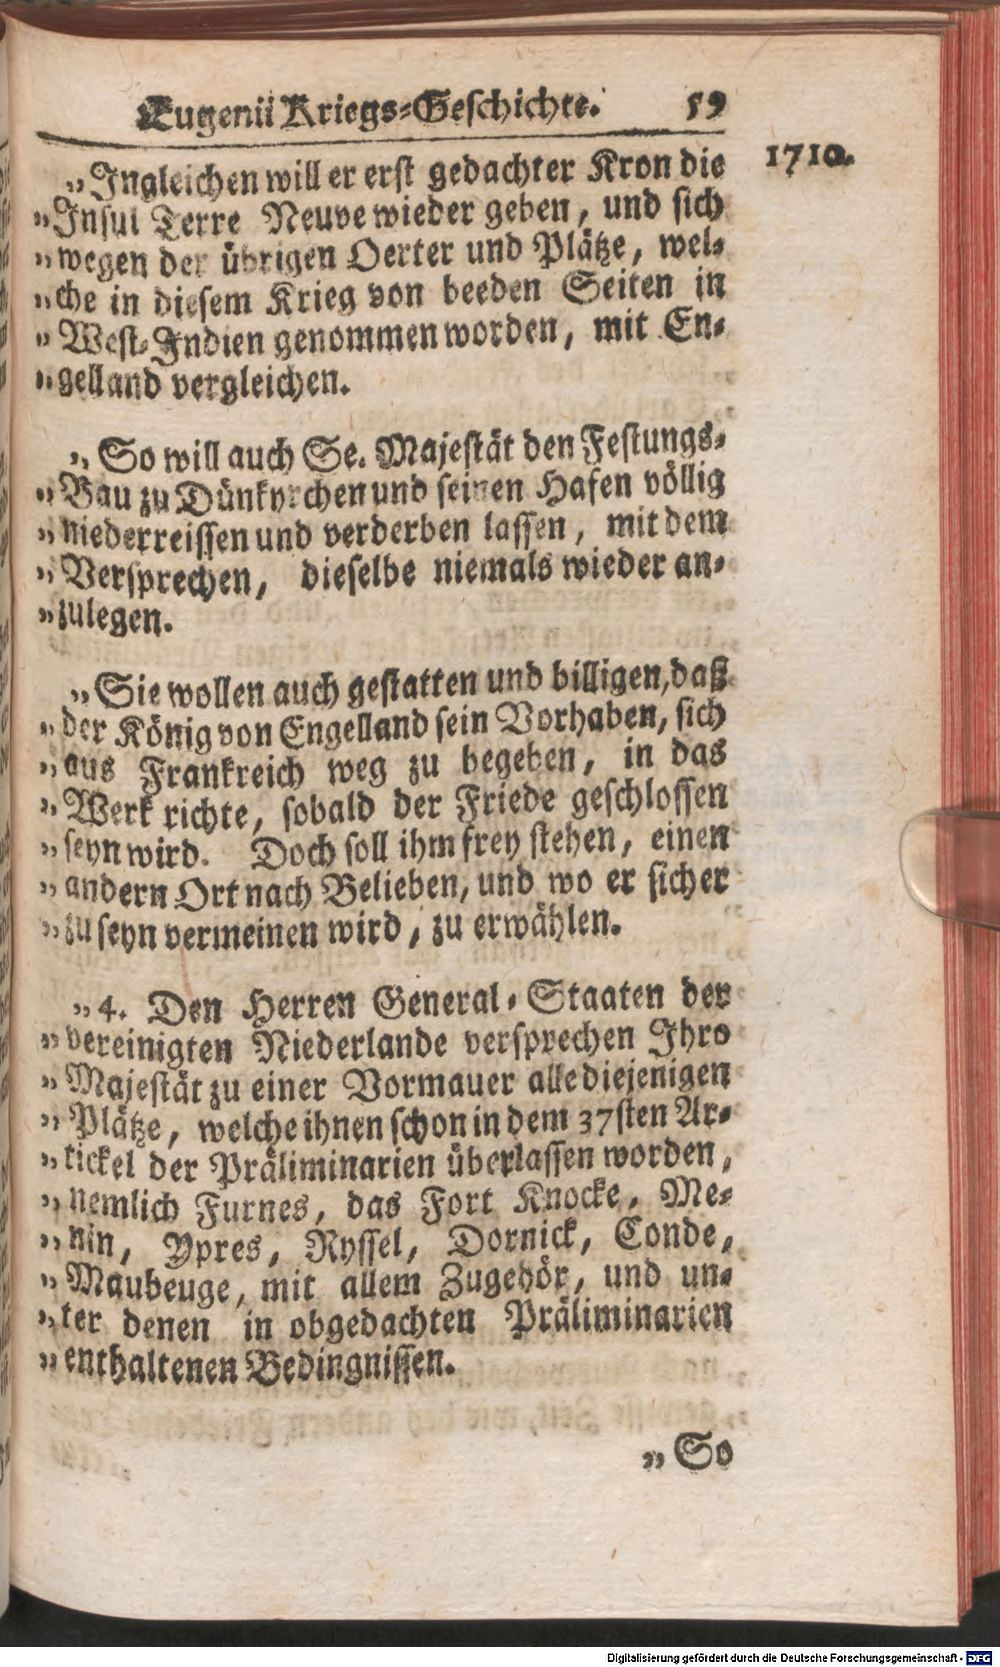 Eugenii Kriegs-Geschichte. 59
1710.
„Ingleichen will er erst gedachter Kron die
„Insul Terre Neuve wieder geben, und sich
„wegen der übrigen Oerter und Plätze, wel-
„che in diesem Krieg von beeden Seiten in
„West-Indien genommen worden, mit En-
„gelland vergleichen.
„So will auch Se. Majestät den Festungs-
„Bau zu Dünkyrchen und seinen Hafen völlig
„niederreissen und verderben lassen, mit dem
„Versprechen, dieselbe niemals wieder an-
„zulegen.
„Sie wollen auch gestatten und billigen, daß
„der König von Engelland sein Vorhaben, sich
„aus Frankreich weg zu begeben, in das
„Werk richte, sobald der Friede geschlossen
„seyn wird. Doch soll ihm frey stehen, einen
„andern Ort nach Belieben, und wo er sicher
„zu seyn vermeinen wird, zu erwählen.
„4. Den Herren General-Staaten der
„vereinigten Niederlande versprechen Ihro
„Majestät zu einer Vormauer alle diejenigen
„Plätze, welche ihnen schon in dem 37sten Ar-
„tickel der Präliminarien überlassen worden,
„nemlich Furnes, das Fort Knocke, Me-
„nin, Ypres, Ryssel, Dornick, Conde,
„Maubeuge, mit allem Zugehör, und un-
„ter denen in obgedachten Präliminarien
„enthaltenen Bedingnissen.
„So
Digitalisierung gefördert durch die Deutsche Forschungsgemeinschaft - DFG